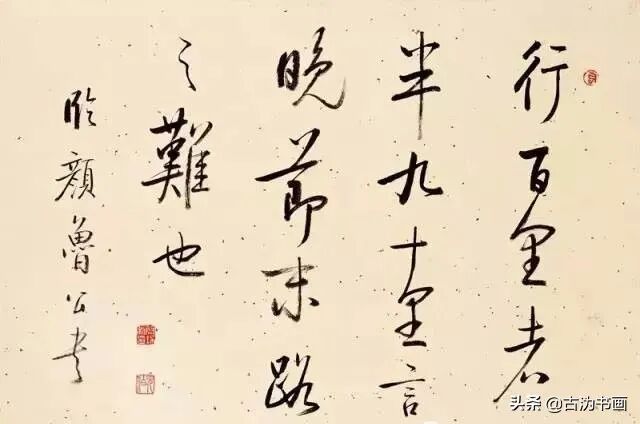 行百里者
半九十里言
晚節末路
之難也
臨顏魯公書
头条 @古沥书画